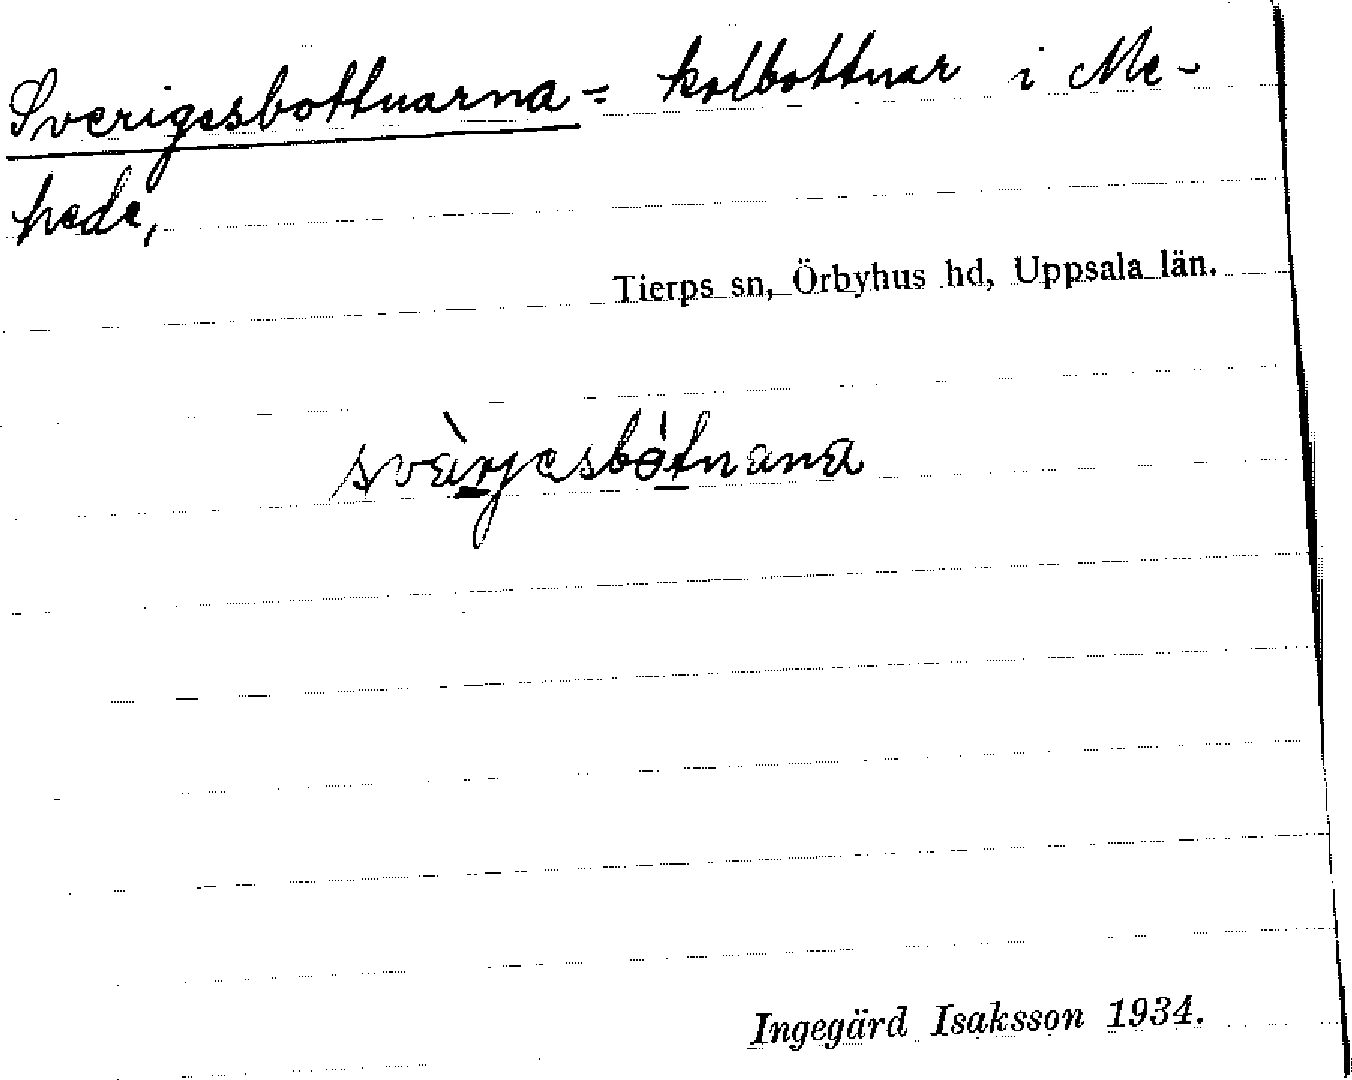 Sverigesbottnarna = kolbottnar i Me-
hede,
Tierps sn, Örbyhus hd, Uppsala län.
svàrjesbótnana
Ingegärd Isaksson 1934.